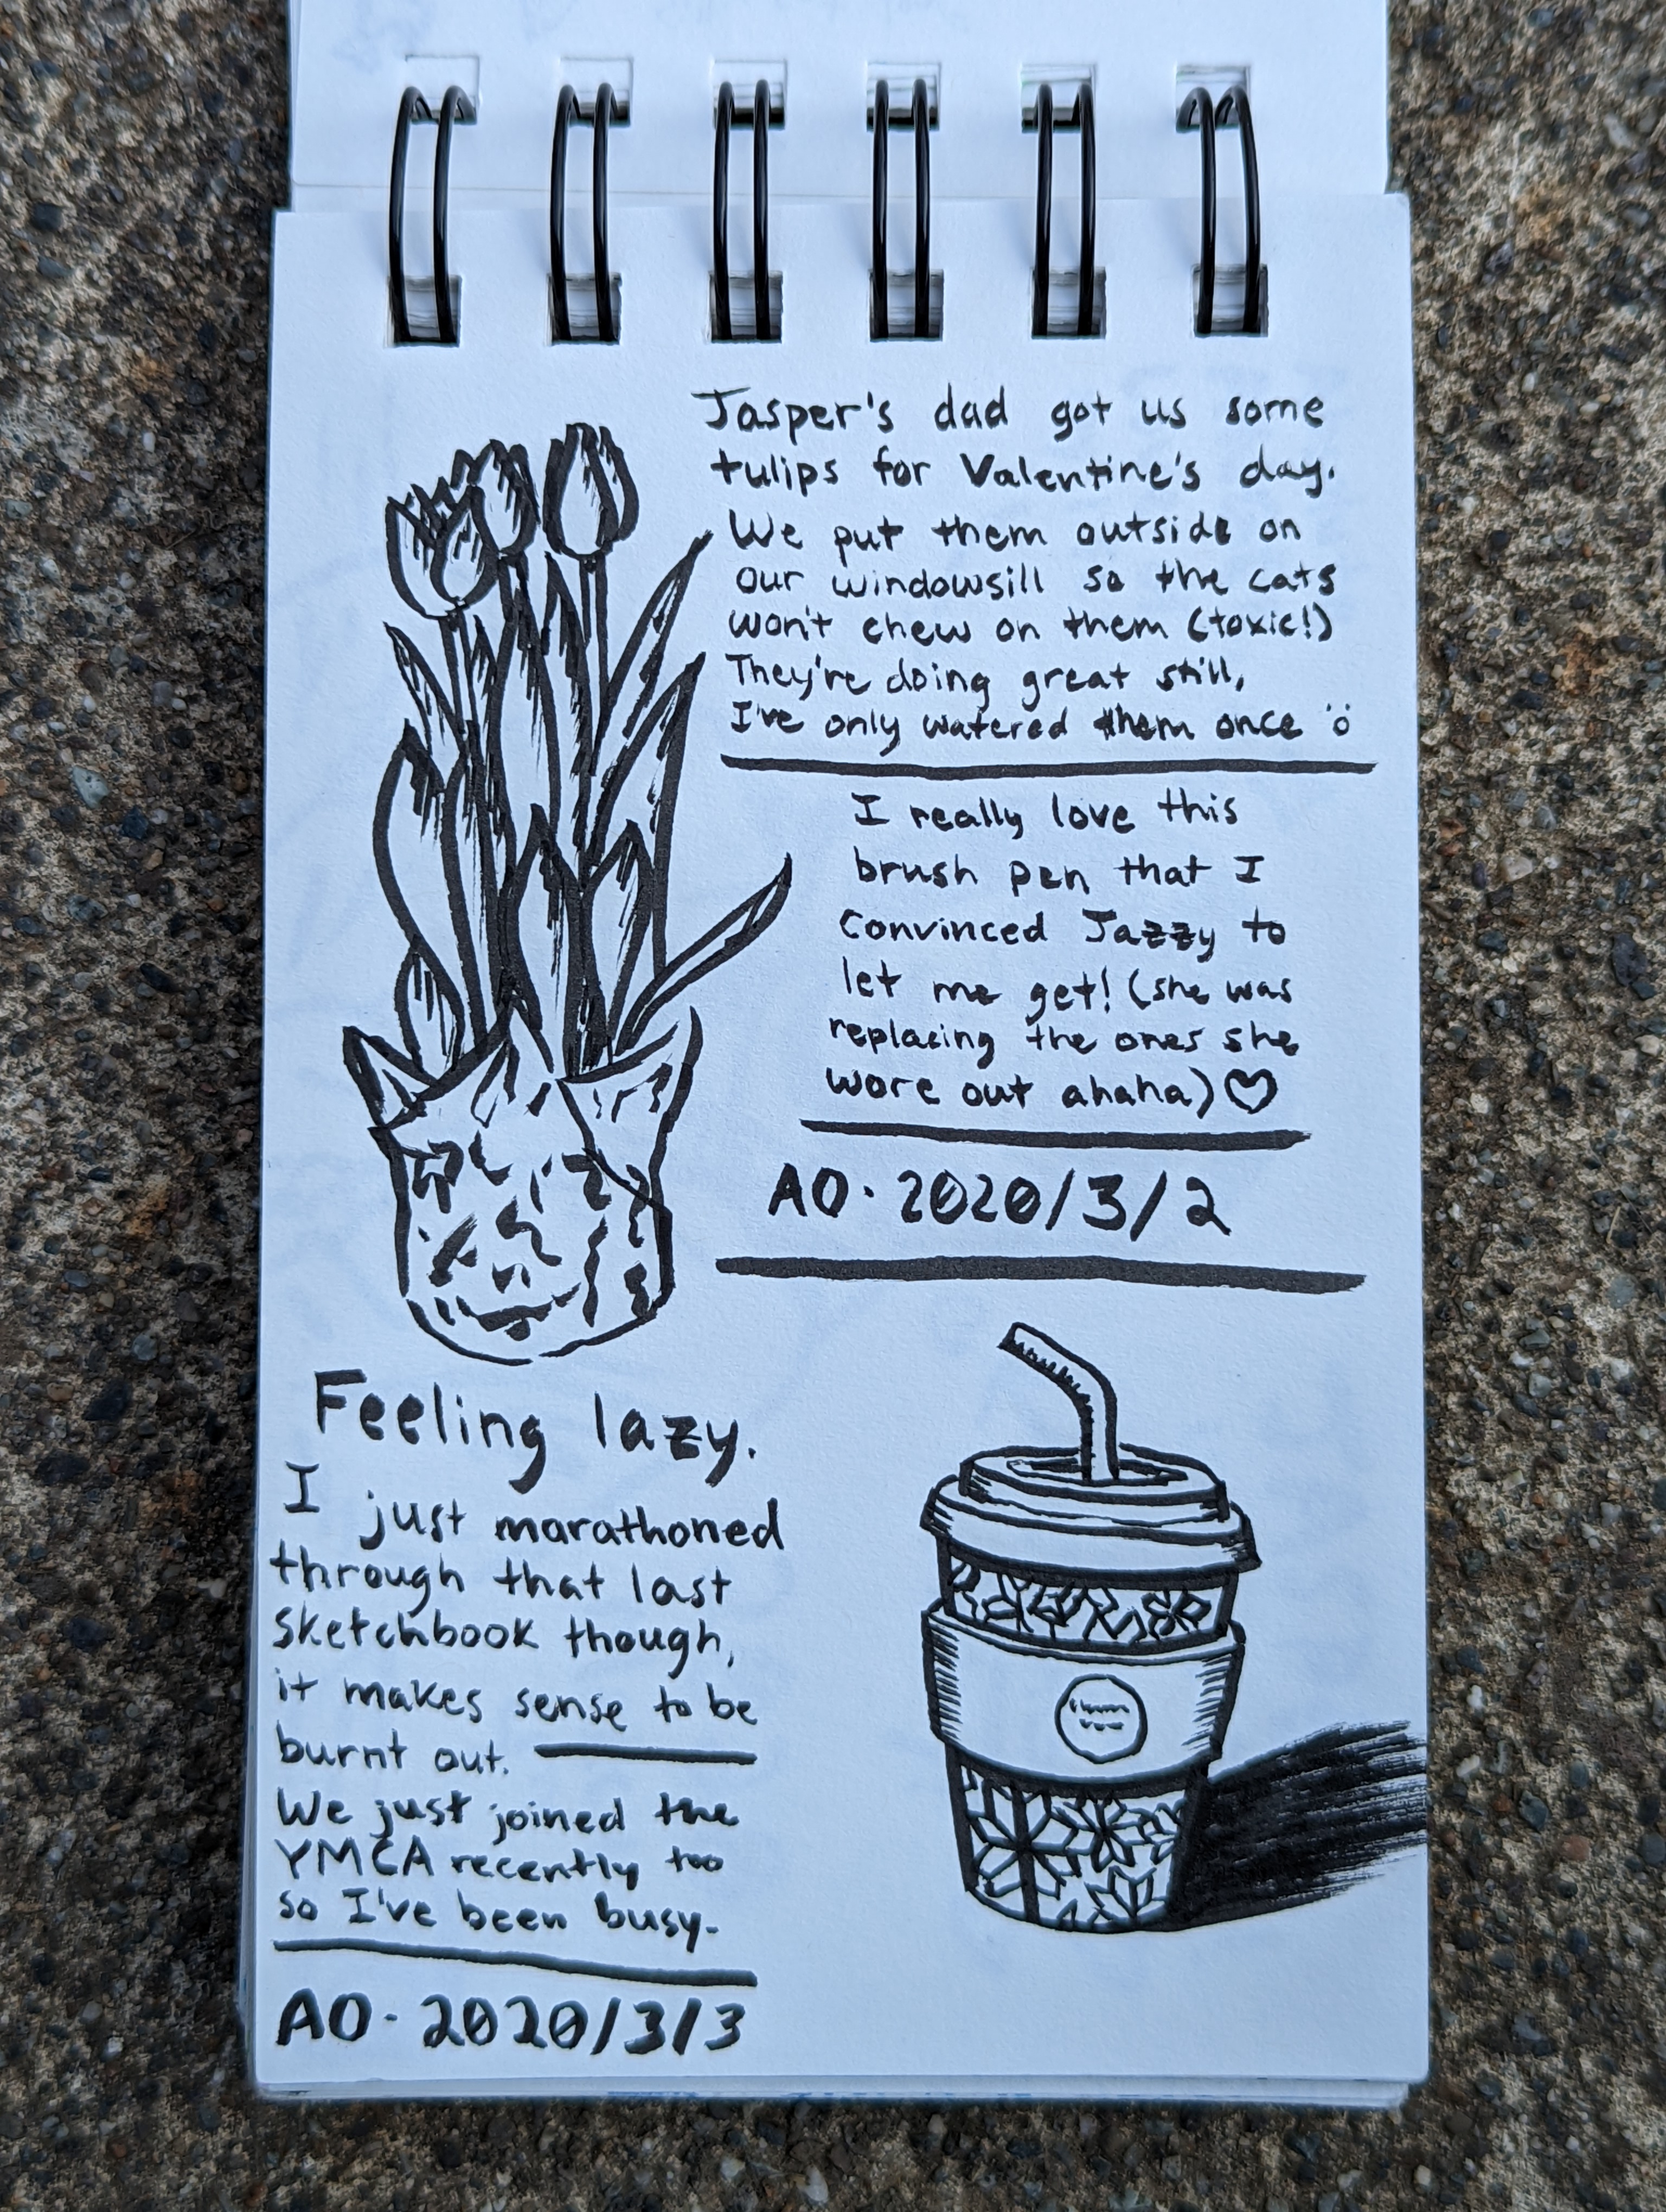 Jasper's dad got us some
tulips for Valentine's day.
We put them outside on
our windowsill so the cats
won't chew on them (toxic!)
They're doing great still,
I've only watered them once ö
I really love this
brush pen that I
convinced Jazzy to
let me get! (she was
replacing the ones she
wore out ahaha) ♡
AO · 2020/3/2
Feeling lazy.
I just marathoned
through that last
sketchbook though,
it makes sense to be
burnt out.
We just joined the
YMCA recently too
so I've been busy.
AO · 2020/3/3